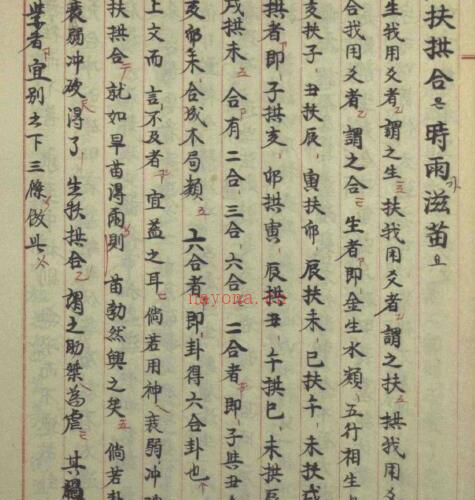 扶拱合時雨滋苗
生我用爻者謂之生扶我用爻者謂之扶拱我用
合我用爻者謂之合生者即金生水類五行相生
亥扶子丑扶辰寅扶卯辰扶未巳扶午未扶戌
拱者即子拱亥卯拱寅辰拱丑午拱巳未拱辰
戌拱未合有二合三合六合二合者即子與丑
亥卯未合成木局類六合者即卦得六合卦也
上文而言不及者宜益之耳倘若用神衰弱冲
扶拱合就如旱苗得雨則苗勃然興之矣倘若卦
衰弱冲破得了生扶拱合謂之助桀為虐其禍
者宜別之下三條倣此
nayona.cn